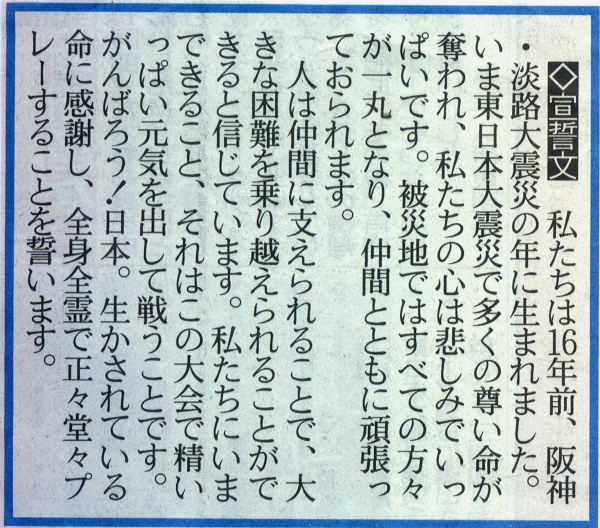 ◇宣誓文　私たちは16年前、阪神
・淡路大震災の年に生まれました。
いま東日本大震災で多くの尊い命が
奪われ、私たちの心は悲しみでいっ
ぱいです。被災地ではすべての方々
が一丸となり、仲間とともに頑張っ
ておられます。
人は仲間に支えられることで、大
きな困難を乗り越えられることがで
きると信じています。私たちにいま
できること、それはこの大会で精い
っぱい元気を出して戦うことです。
がんばろう！日本。生かされている
命に感謝し、全身全霊で正々堂々プ
レーすることを誓います。